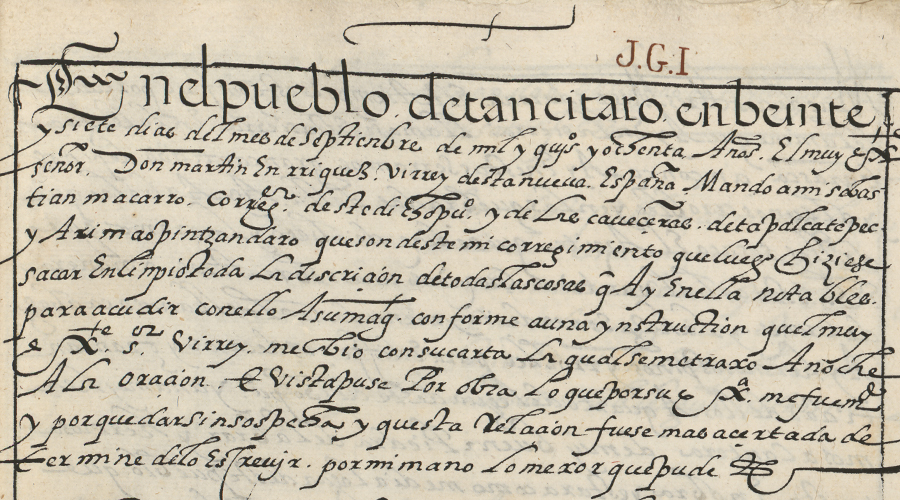 J.G.I
En el pueblo de tancitaro en beinte
y siete dias del mes de Septienbre de mil y quis y ochenta Años. El muy ex
señor. Don martin Enrriquez. Virrey desta nueva. España Mando a mi sebas
tian macarro. Correg.or deste dicho pu.o y de las caveceras. de tapalcatepec
y Arimao pintzandaro que son deste mi corregimiento que luego hiziese
sacar En limpio toda la discricion de todas las cosas q Ay En ella notables.
para acudir con ello A su mag. conforme a una ynstruction quel muy
e X.te s.or Virrey. me enbio con su carta la qual se me traxo Anoche
A la oracion. E Vista puse Por obra lo que por su ex.a me fue md
y por que dar sin sospecha y questa Relacion fuese mas acertada de
termine de lo Escrevir. por mi mano lo mexor que pude